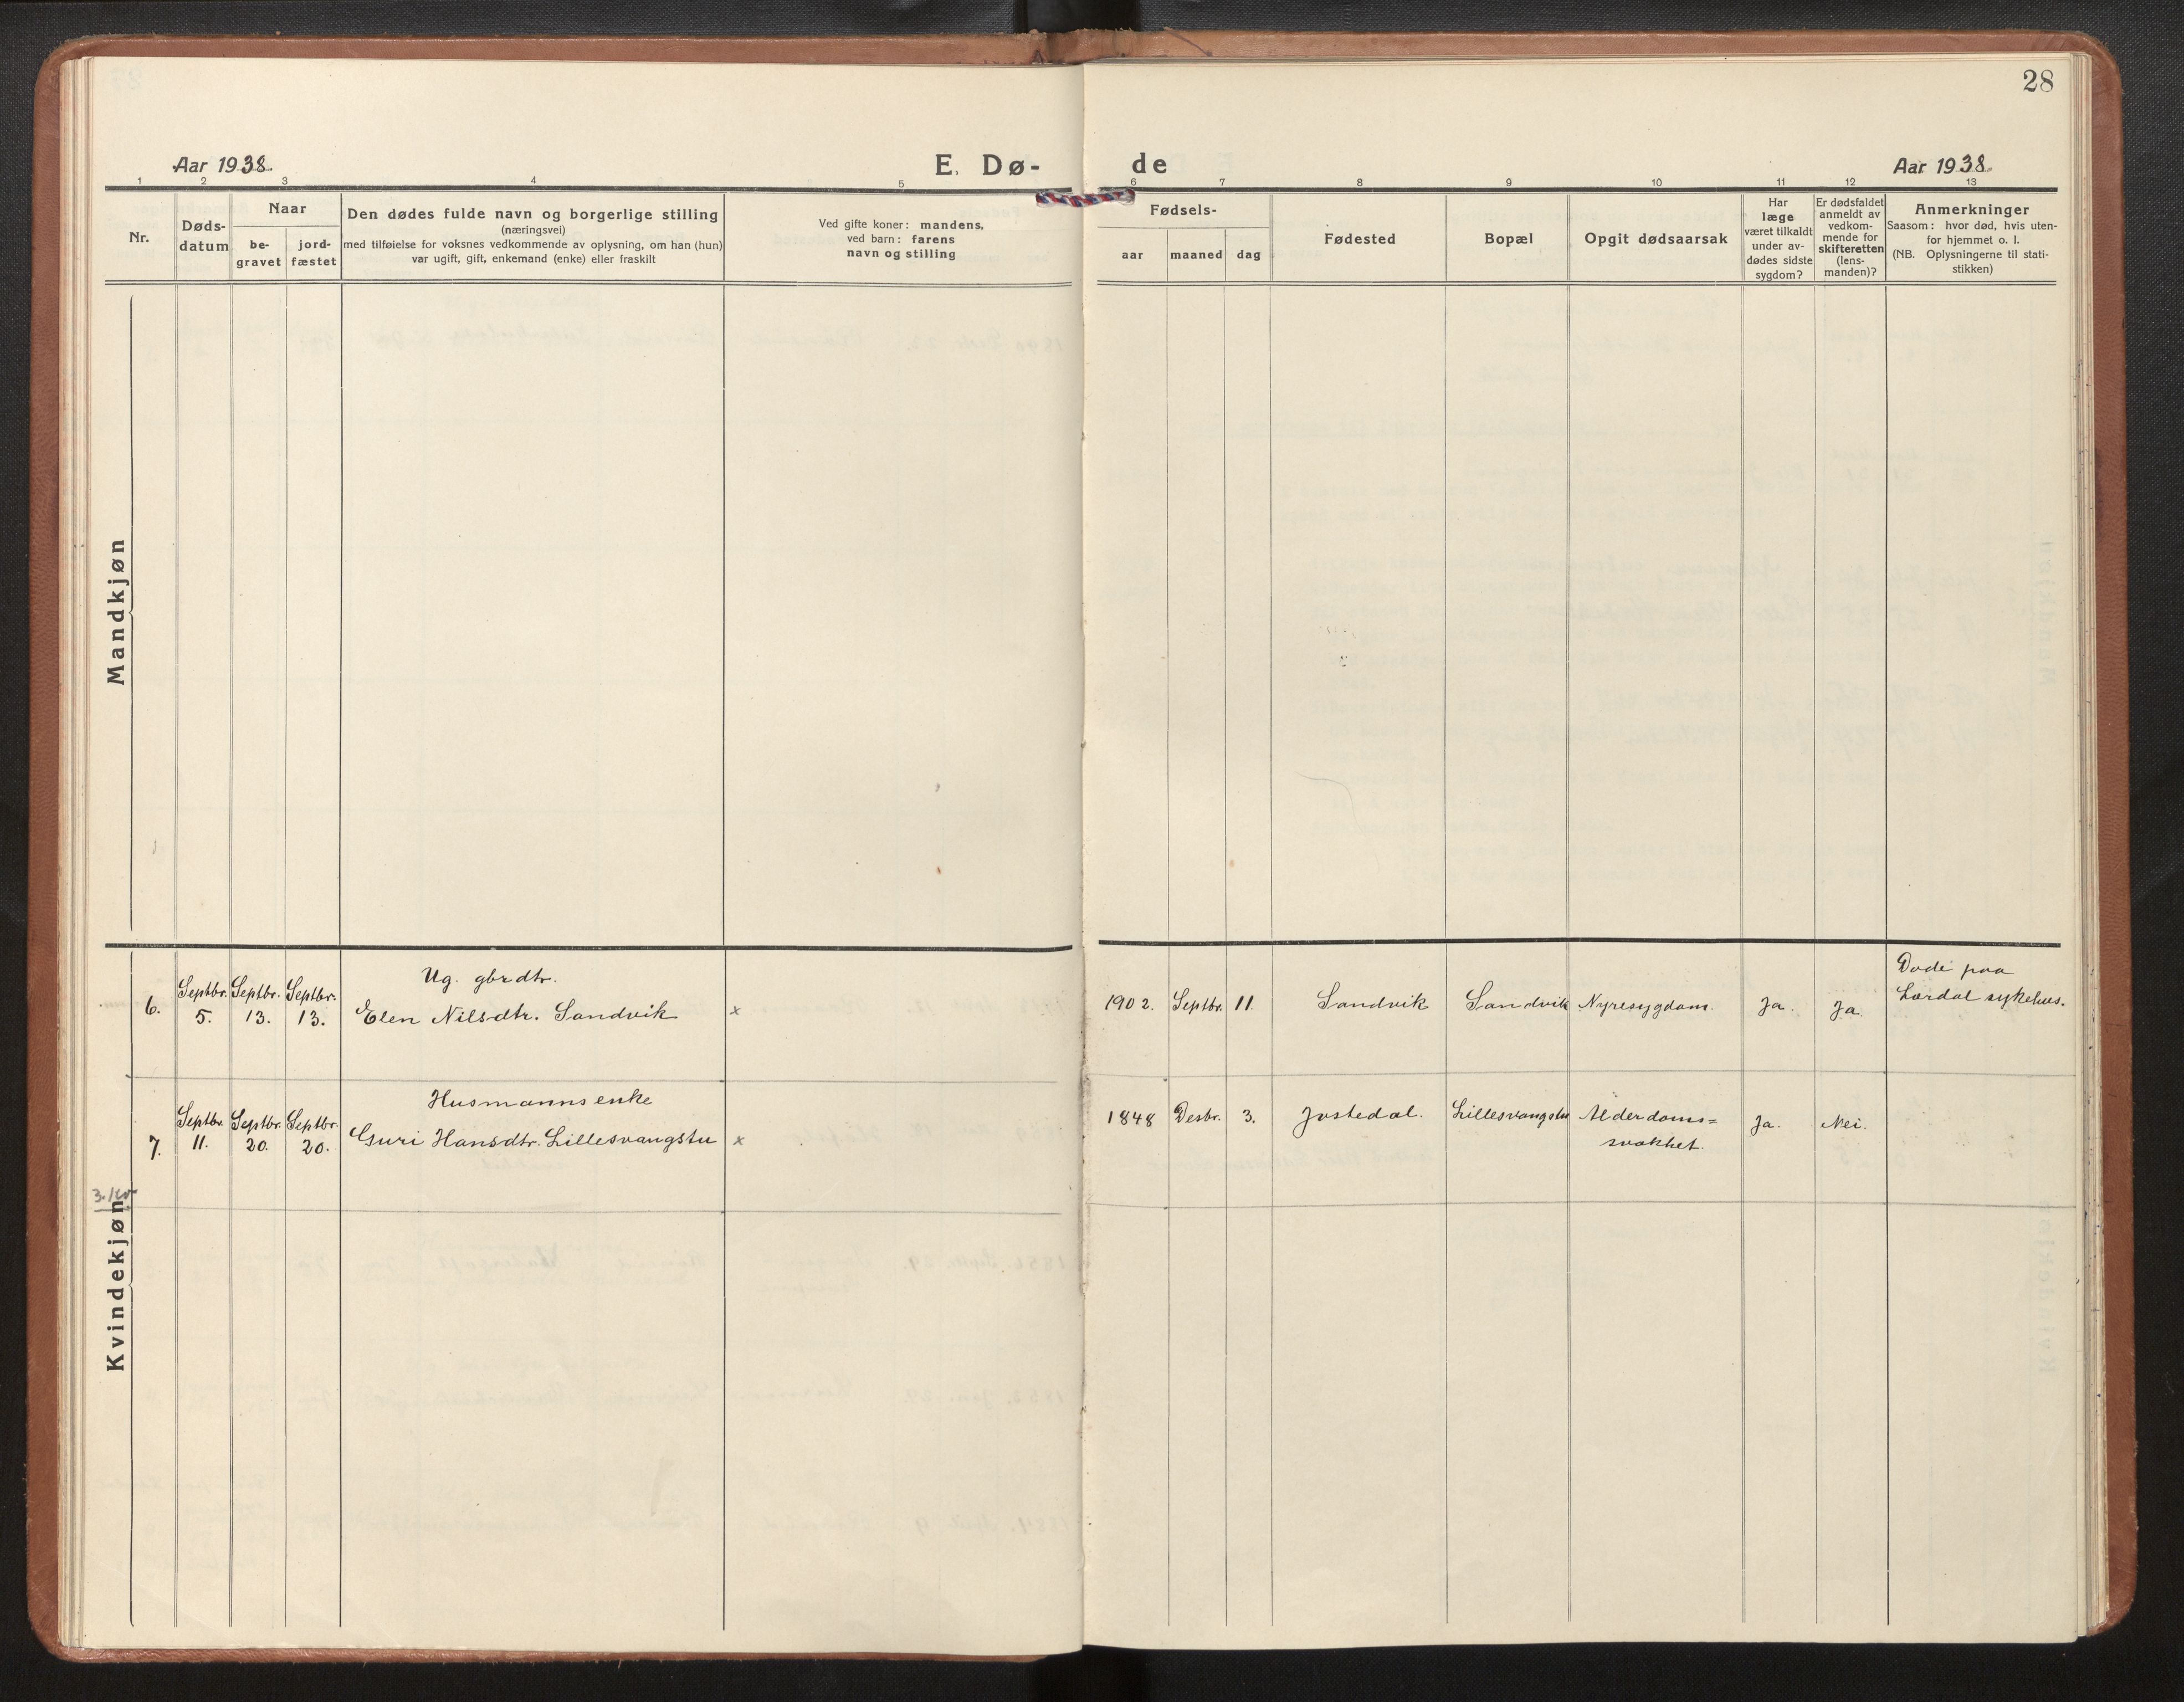 28
Aar 1938.
E. Dø-
de
Aar 1938.
1 2 3 4 5 6 7 8 9 10 11 12 13
Nr.
Døds-
datum
Naar
be-
gravet
jord-
fæstet
Den dødes fulde navn og borgerlige stilling
(næringsvei)
med tilføielse for voksnes vedkommende av oplysning, om han (hun)
var ugift, gift, enkemand (enke) eller fraskilt
Ved gifte koner: mandens,
ved barn: farens
navn og stilling
Fødsels-
aar
maaned
dag
Fødested
Bopæl
Opgit dødsaarsak
Har
læge
været tilkaldt
under av-
dødes sidste
sygdom?
Er dødsfaldet
anmeldt av
vedkom-
mende for
skifteretten
(lens-
manden)?
Anmerkninger
Saasom: hvor død, hvis uten-
for hjemmet o. l.
(NB. Oplysningerne til stati-
stikken)
Mandkjøn
Kvindekjøn
Ug. gbrdtr.
Døde paa
6. Septbr. 5. Septbr. 13. Septbr. 13. Elen Nilsdtr. Sandvik x 1902. Septbr. 11. Sandvik Sandvik Nyresygdom. Ja. Ja. Lærdal sykehus.
Husmannsenke
7. Septbr. 11. Septbr. 20. Septbr. 20. Guri Hansdtr. Lillesvangstu x 1848 Desbr. 3. Jostedal. Lillesvangstu Alderdoms=
svakhet. Ja. Nei.
3. Kv